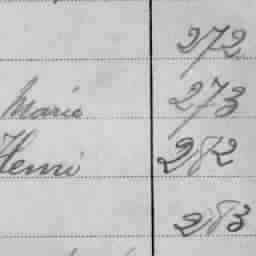 272
Marie 273
Henri 282
283